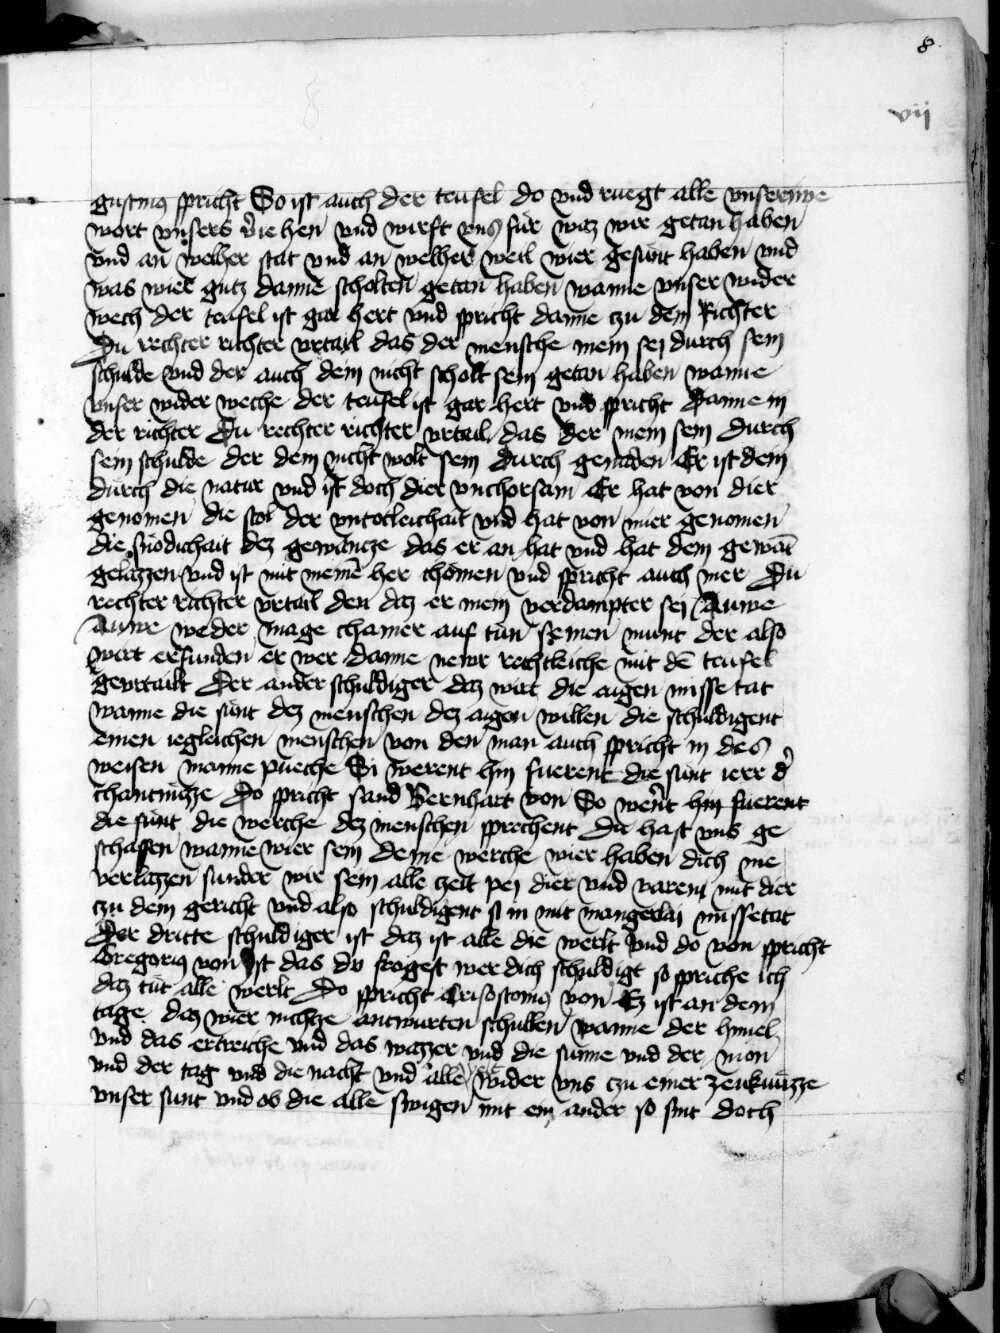 8
vij
gustinus spricht So ist auch der teufel do vnd ruegt alle vnserewe
wort vnsers v'iehen vnd wirft vns für waz wir getan haben
vnd an welher stat vnd an welher weil wier gesünt haben vnd
was wier gutz danne scholten getan haben wanne vnser wider
wech der teufel ist gar hert vnd spricht danne czu dem Richter
Du rechter richter vrtail das der mensche mein sei durch sein
schulde vnd der auch dein nicht scholt sein getan haben wanne
vnser wider weche der teufel ist gar hert vnd spricht danne in
der richter Du rechter richter vrtail das der mein sein durch
sein schulde der dein nicht wolt sein durch genaden Er ist dein
durch die natur vnd ist doch dier vnchorsam Er hat von dier
genomen die stol der vntotleichait vnd hat von mier genomen
die snodichait dez gewantze das er an hat vnd hat dein gewāt
gelazzen vnd ist mit meinē her chomen vnd spricht auch mer Du
rechter richter vrtail den daz er mein verdampter sei Auwe
Auwe weder mage chamer auf tün seinen munt der also
wirt erfunden er wer danne newr rechtleiche mit dē teufel
gevrtailt Der ander schuldiger daz wirt die aigen misse tat
wanne die sünt dez menschen dez aigen willen die schuldigent
einen iegleichen menschen von den man auch spricht in des
weisen manne pueche Si werent hin fuerent die sünt ierr d'
chantnüzze Do spricht sand Bernhart von So wen't hin fuerent
die sünt die werche dez menschen sprechent Du hast vns ge
schaffen wanne wier sein deine werche wier haben dich nie
verlazzen sunder wir sein alle zeit pei dier vnd varent mit dier
czu dem gericht vnd also schuldigent si in mit mangerlai missetat
Der dritte schuldiger ist daz ist alle die werlt vnd do von spricht
Gregorius von Ist das du frogest wer dich schuldigt so spriche ich
daz tüt alle werlt Do spricht Crisostomus von Ez ist an dem
tage daz wier nichtze antwurten schullen wanne der himel
vnd das ertreiche vnd das wazzer vnd die sunne vnd der mon
vnd der tag vnd die nacht vnd alle werlt wider vns czu einer zeuknüzze
vnser sunt vnd ob die alle swigen mit ein ander so sint doch